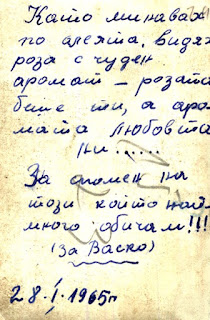 Като минавах
по алеята, видях
роза с чуден
аромат – розата
бите ти, а аро-
мата любовта
ни......
За спомен на
този който най
много обичам!!!
(За Васко)
28.I.1965г